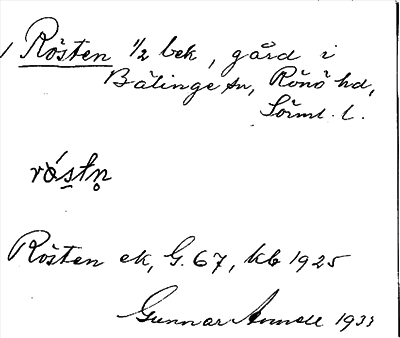 1 Rösten 1/2 bek, gård i
Bälinge sn, Rönö hd,
Sörml. l.
rö́stn̥
Rösten ek, G. 67, kb 1925
Gunnar 1933